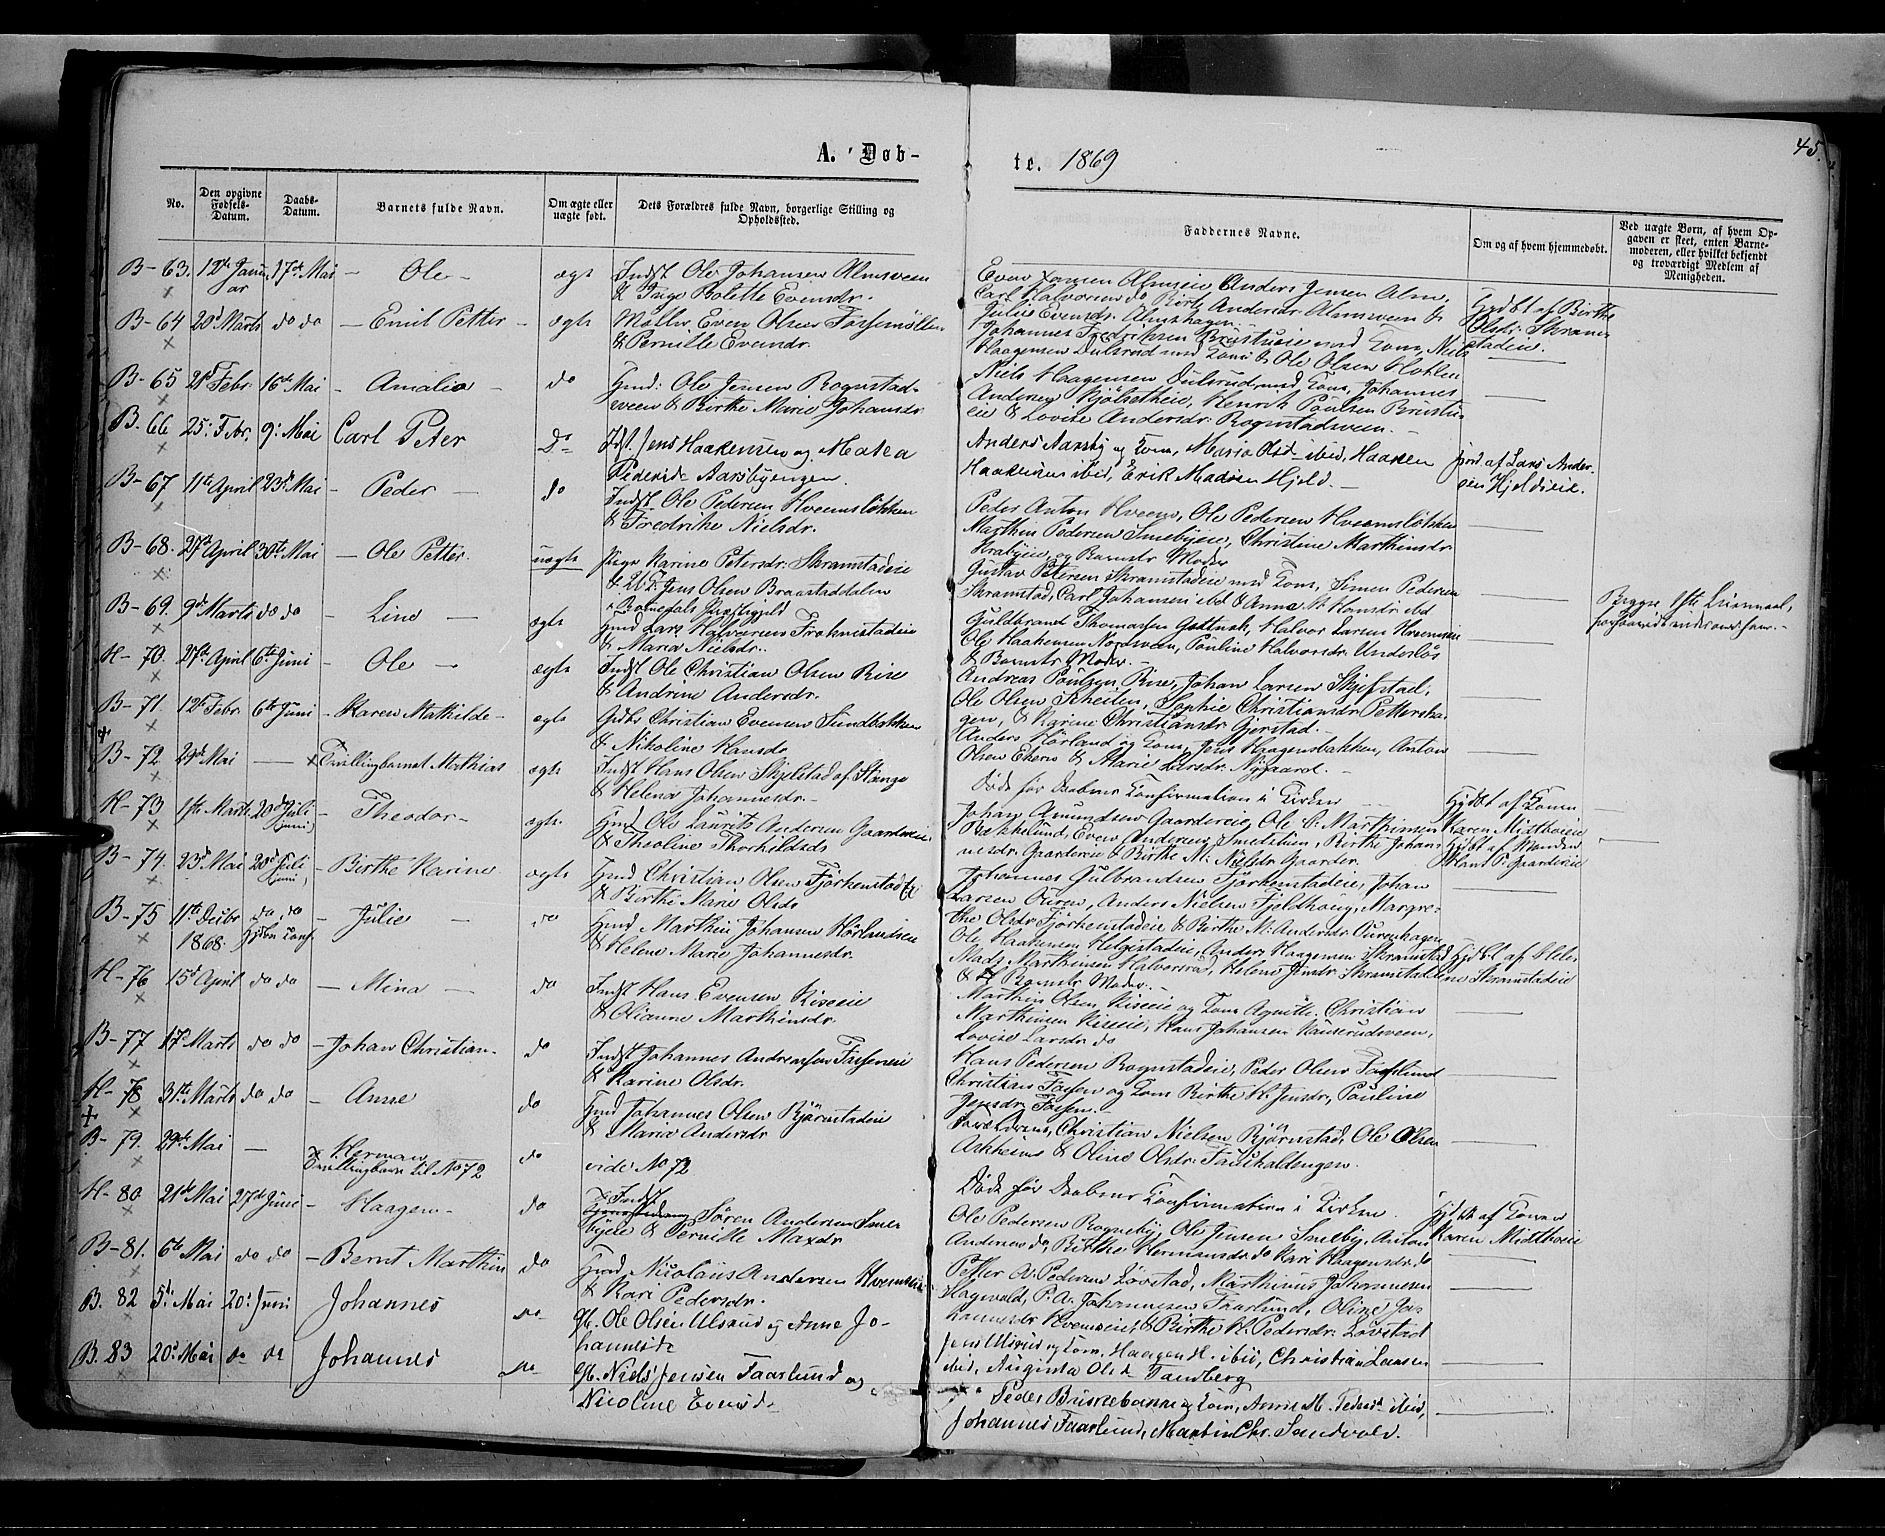 45.
A. Døb-
te. 1869
No.
Den opgivne Fødsels-Datum.
Daabs-Datum.
Barnets fulde Navn.
Om ægte eller uægte født.
Dets Forældres fulde Navn, borgerlige Stilling og Opholdssted.
Faddernes Navne.
Om og af hvem hjemmedøbt.
Ved uægte Børn, af hvem Opgaven er skeet, enten Barnemoderen, eller hvilket bekjendt og troværdigt Medlem af Menigheden.
B-63. 12te Januar 17de Mai - Ole - ægte Indst Ole Johansen Almsveen
& Inge Bolette Evensdr.
Carl Halvorsen do Birte Andersdr Almsveen &
Julie Evensdr. Almshagen
B-64 20d Marts do do - Emil Petter - ægte Møller Even Olsen Fossemøllen
& Pernille Evensdr.
Johannes Fredriksen Brustueie med Kone, Niels
Haagensen Dulsrud med Kone & Ole Olsen
Hjdbt af Birthe
Olsdr. Skramstadeie.
B-65 21d Febr. 16de Mai - Amalie - do Hmd: Ole Jensen Rognstad-
veen & Birthe Marie Johansdr
Niels Haagensen Dulsrud med Kone, Johannes
Andersen Kjølsetheie, Henrik Poulsen Brustu-
eie & Lovise Andersdr. Rognstadsveen.
B. 66 25: Febr. 9: Mai Carl Peter Do Idst. Jens Haakensen og Matea
Pedersd. Aarsbyengen.
Anders Aarsby og Kone, Maria Olsd ibid, Haaken
Haakensen ibid, Erik Madsen Hjeld.
af Lars Ander-
sen Hjeldseie.
B-67 11te April 23de Mai - Peder - do Indst. Ole Pedersen Hveemsløkken
& Fredrike Nielsdr.
Peder Anton Hveem, Ole Pedersen Hveemsløkken
Marthin Pedersen Smebyeie, Christine Marthinsdr.
og Barnets Moder
B-68. 27de April 30te Mai - Ole Petter. uægte Pige Karine Petersdr. Skramstadeie
& U.K. Jens Olsen Braastaddalen
i Romedals Præstegjeld
Gustav Petersen Skramstadeie med Kone, Simen Pedersen
Skramstad, Carl Johansen ibd & Anne M. Hansdr ibd
Begge 1ste Leiermaal,
B-69. 9de Marts do do - Line - ægte Hmd Lars Halvorsen Frohnestadeie
& Maria Nielsdr.
Guldbrand Thomassen Halvor Larsen
Ole Haakensen Nordsveen, Pauline Halvorsdr.
& Barnets Moder.
H-70. 27de April 6te Juni - Ole - ægte Indst Ole Christian Olsen Rise
& Andrine Andersdr.
Andreas Poulsen Rise, Johan Larsen Skjefstad,
B-71 12te Febr. 6te Juni - Karen Mathilde - ægte Christian Evensen Sundbakken
& Nikoline Hansdr
Ole Olsen Sophie Christiansdr.
& Karine Christiansdr Gjerstad.
Anders Hørland og Kone, Jens Haagensbakken, Anton
Olsen & Marie Larsdr. Nygaard.
B-72 29de Mai - Tvillingbarnet Mathias ægte Indst Hans Olsen Skjelstad af Stange
& Helena Johannesdr.
Døde før Daabens Konfirmation i Kirken
Hjdbt af Konen
Karen Midtboeie
H-73 1ste Marts 20de Juli (Juni) - Theodor - ægte Hmd Ole Laurits Andersen Gaardereie
& Theoline Thorkildsdr
Johan Amundsen Gaardereie, Ole C. Marthinsen
Bækkelund, Even Andersen, Birthe Johan-
nesdr. Gaardereie & Birthe M: Nielsdr. Gaarder.
Hjdbt af Manden
Hans P. Gaardereie
B-74. 23de Mai 20de Juli (Juni) - Birthe Karine ægte Hmd Christian Olsen Fjørkenstadei
& Birthe Marie Olsdr
Johannes Gulbrandsen Fjørkenstadeie, Johan
Larsen Ouren, Anders Nielsen Fjeldhoug, Margre-
the Olsdr. Fjørkenstadeie & Birthe M: Andersdr. Ourenhagen
B-75 11te Decbr 1868. do do Hjdbn Conf. - Julie - do Hmd Marthin Johansen Hørlandseie
& Helene Marie Johannesdr.
Ole Haakensen Helgestadeie, Anders Haagensen Skramstad,
Mads Marthinsen Halvorsrud, Helene Jensdr. Skramstadeie
& Barnets Moder.
Hjdbt af Hele-
ne Skramstadeie
H-76 15d April do do - Mina - do Indst Hans Evensen Riseeie
& Olianne Marthinsdr.
Marthin Olsen Riseeie og Kone Agnitte, Christian
Marthinsen Riseeie, Hans Johansen
Lovise Larsdr do
B-77 17d Marts do do - Johan Christian - do Indst Johannes Andreassen Fossumeie
& Karine Olsdr.
Hans Pedersen Rognstadeie, Peder Olsen Faaslund
Christian Fossen og Kone Birthe K. Jensdr, Pauline
Jensdr. Fossen.
H-78 31te Marts do do - Anne do Hmd Johannes Olsen Bjørnstadeie
& Maria Andersdr
Forældrene, Christian Nielsen Bjørnstad, Ole Olsen
Askheim & Oline Olsdr.
B-79. 29de Mai - Herman
Tvillingbarn til No 72 do vide No 72
Døde før Daabens Konfirmation i Kirken.
Hjdbt af Konen
Karen Midtboeie
H-80 21de Mai 27de Juni - Haagen - do Indst Søren Andersen Sme-
byeie & Pernille Maxsdr
Ole Pedersen Rogneby, Ole Jensen Smeby, Anton
Andersen do, Birthe Hermansdr. do Kari Haagensdr. do
B-81. 6te Mai do do - Bernt Marthin do Hmd Nicolaus Andersen
& Kari Pedersdr.
Petter A. Pedersen Løvstad, Marthinus Johannesen
P.A. Johannesen Faarlund, Oline Jo-
hannesdr. & Birthe K. Pedersdr. Løvstad
B. 82 5d Mai 20: Juni Johannes do Gb. Ole Olsen Ulsrud og Anne Jo-
hannesd.
Jens Ulsrud og Kone, Haagen H. ibid, Christian Larsen
ibid, Augusta Olsd. Tandberg
B. 83 20: Mai do do Johannes do Gb. Niels Jensen Faarlund og
Nicoline Evensd.
Peder og Kone, Anne M. Pedersd ibid,
Johannes Faarlund, Martin Chr. Sandvold.